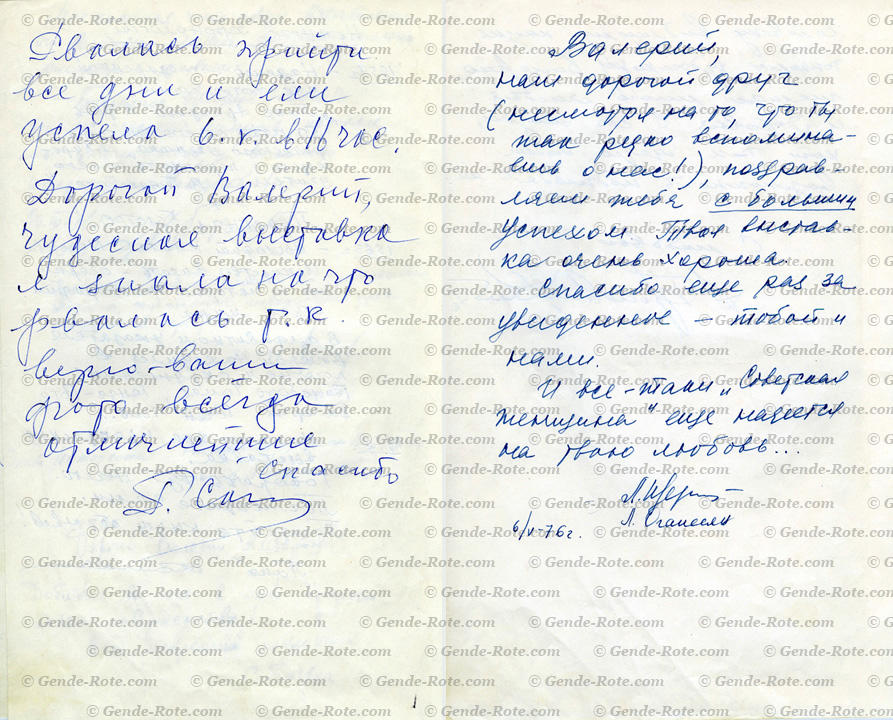 Рвалась прийти
все дни и еле
успела 6. к. в 16 час.
Дорогой Валерий,
чудесная выставка
я знала на что
рвалась т. к.
верю - ваши
фото всегда
отличнейшие
Спасибо
Валерий,
наш дорогой друг
(несмотря на то, что ты
так редко вспомина-
ешь о нас!), поздрав-
ляем тебя с большим
успехом Твоя выстав-
ка очень хороша.
Спасибо еще раз за
увиденное – тобой и
нами.
И все-таки „Советская
женщина" еще надеется
на твою любовь...
Л. Оганесян
6/V-76г.
© Gende-Rote.com